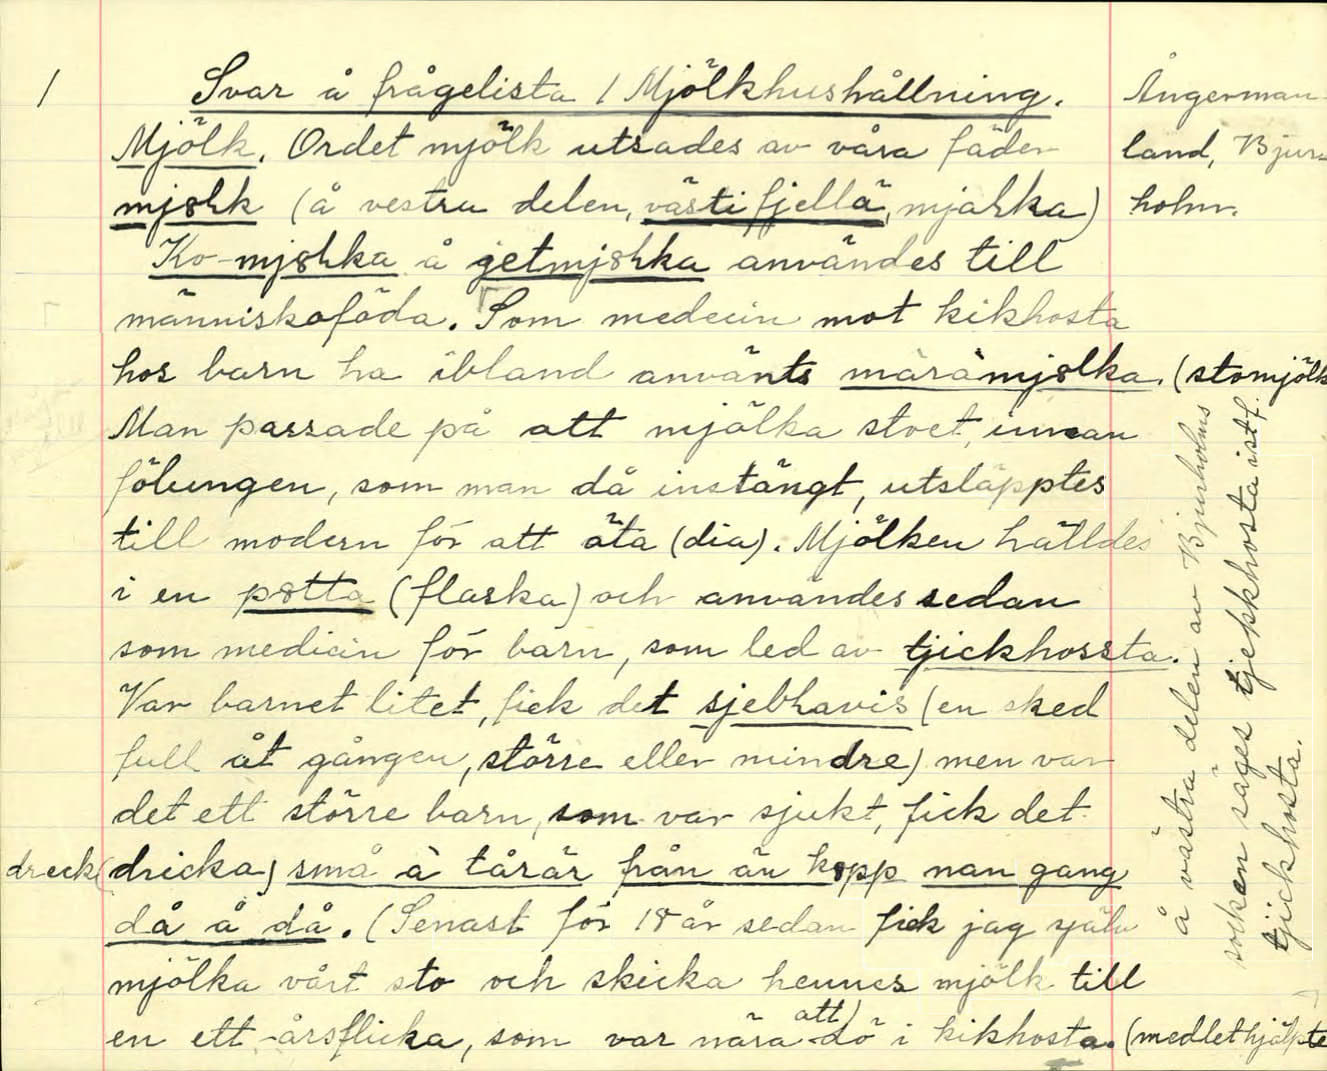 1
Svar å frågelista 1 Mjölkhushållning.
Ångerman-
Mjölk. Ordet mjölk utsades av våra fäder
land, Bjur-
mjShk (å vestra delen, västi fjellä, mjahka)
holm.
Ko-mjShka å jetmjShka användes till
människoföda. Som medecin mot kikhosta
hos barn ha ibland använts märàmjSlka. (stomjölk
Man passade på att mjölka stoet, innan
fölungen, som man då instängt, utsläpptes
till modern för att äta (dia). Mjölken hälldes
i en pStta (flaska) och användes sedan
som medicin för barn, som led av tjickhossta.
Var barnet litet, fick det sjebhavis (en sked
full åt gången, större eller mindre) men var
det ett större barn, som var sjukt, fick det
dreck (dricka) små à tårär från än kSpp nan gang
då å då. (Senast för 18 år sedan fick jag själv
mjölka vårt sto och skicka hennes mjölk till
en ett-årsflicka, som var nära att dö i kikhosta. (medlet hjälpte
å västra delen av Bjurholms
socken säges tjekkhosta ist.f.
tjickhosta.